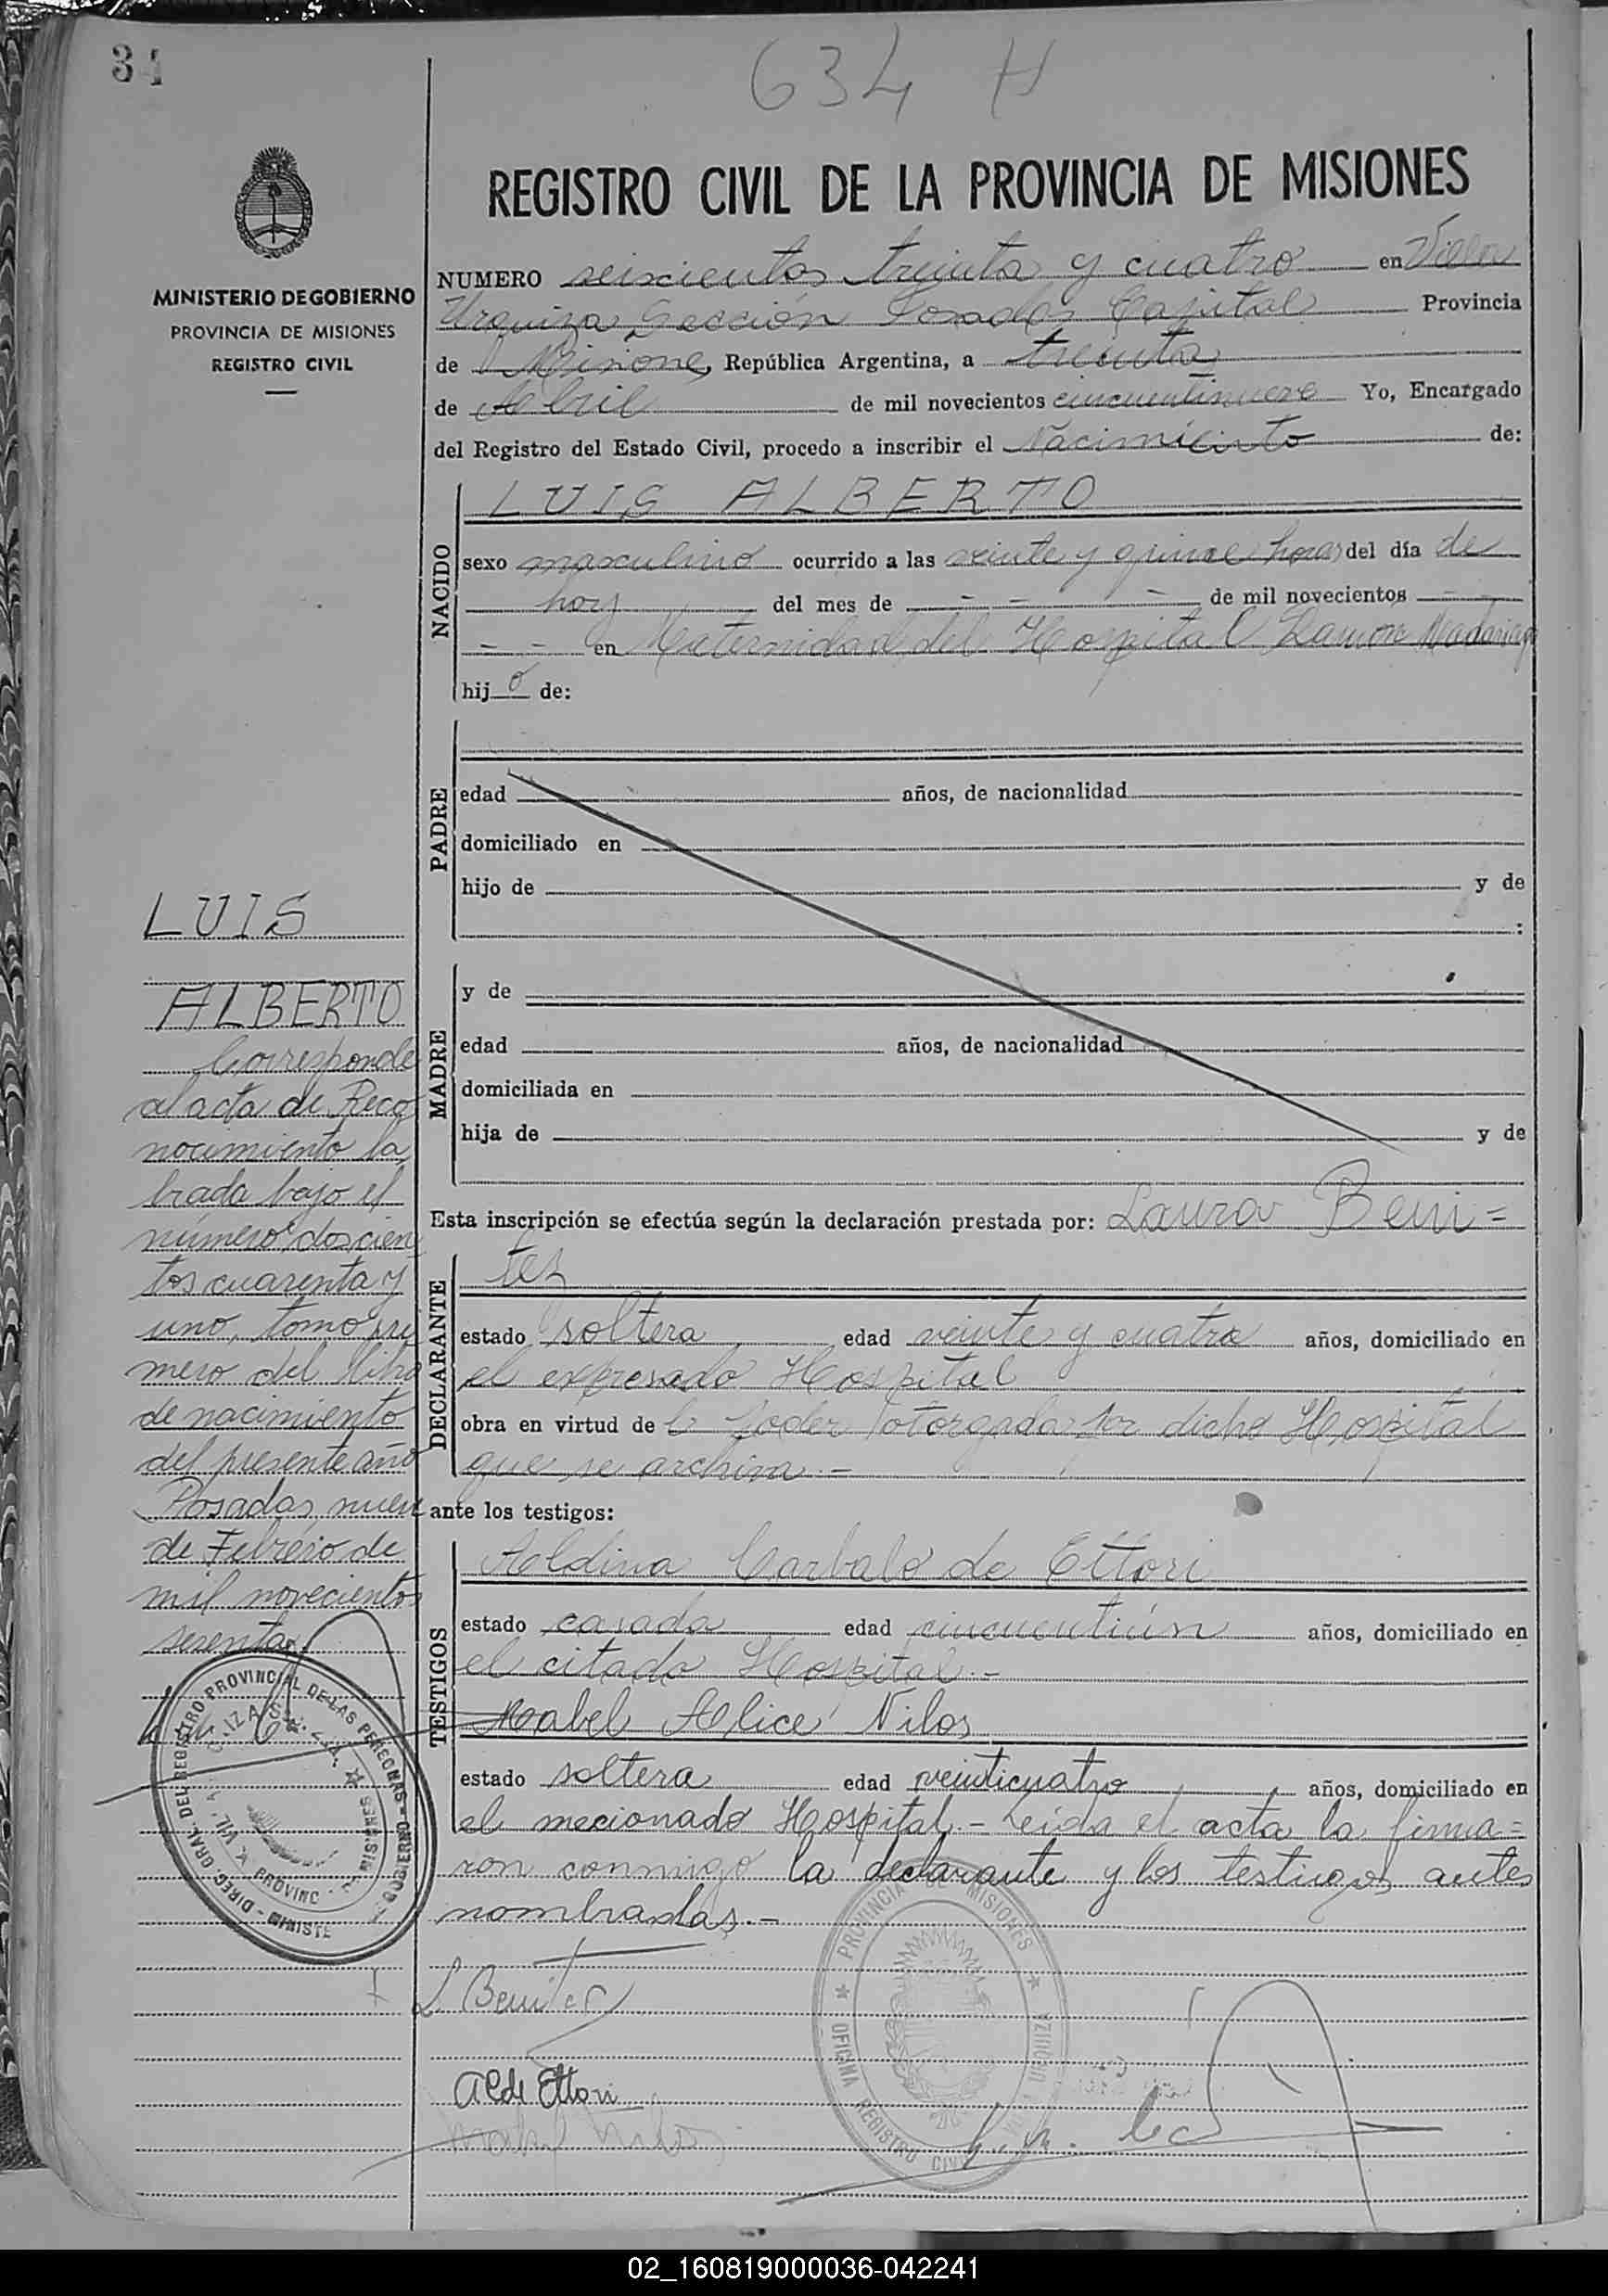 34
634 H
MINISTERIO DE GOBIERNO
PROVINCIA DE MISIONES
REGISTRO CIVIL
REGISTRO CIVIL DE LA PROVINCIA DE MISIONES
NUMERO seiscientos treinta y cuatro en Villa
Urquiza Sección Posadas Capital Provincia
de Misiones, República Argentina, a treinta
de Abril de mil novecientos cincuentinueve Yo, Encargado
del Registro del Estado Civil, procedo a inscribir el Nacimiento de:
NACIDO
LUIS ALBERTO
sexo masculino ocurrido a las veinte y quince horas del día de
hoy del mes de - - - de mil novecientos - -
- - en Maternidad del Hospital Ramón Madariaga
hijo de:
PADRE
edad años, de nacionalidad
domiciliado en
hijo de y de
:
MADRE
y de
edad años, de nacionalidad
domiciliada en
hija de y de
Esta inscripción se efectúa según la declaración prestada por: Laura Beni=
DECLARANTE
tez
estado soltera edad veinte y cuatro años, domiciliado en
el expresado Hospital
obra en virtud de l poder otorgado por dicho Hospital
que se archiva.-
ante los testigos:
TESTIGOS
Aldina Carbalo de Ettori
estado casada edad cincuentiún años, domiciliado en
el citado Hospital.-
Mabel Alice Nilos
estado soltera edad veinticuatro años, domiciliado en
el mecionado Hospital.- Leída el acta la firma=
ron conmigo la declarante y los testigos antes
nombradas.-
L Benitez
A C de Ettori
Mabel Nilos
LUIS
ALBERTO
Corresponde
al acta de Reco
nocimiento la
brada bajo el
número doscien
tos cuarenta y
uno, tomo pri
mero del libro
de nacimiento
del presente año
Posadas, nueve
de Febrero de
mil novecientos
sesenta.
DIREC. GRAL. DEL REGISTRO PROVINCIAL DE LAS PERSONAS - MINISTE GOBIERNO
PROVINCIA DE MISIONES
OFICINA REGISTRO CIVIL URQUIZA
02_160819000036-042241